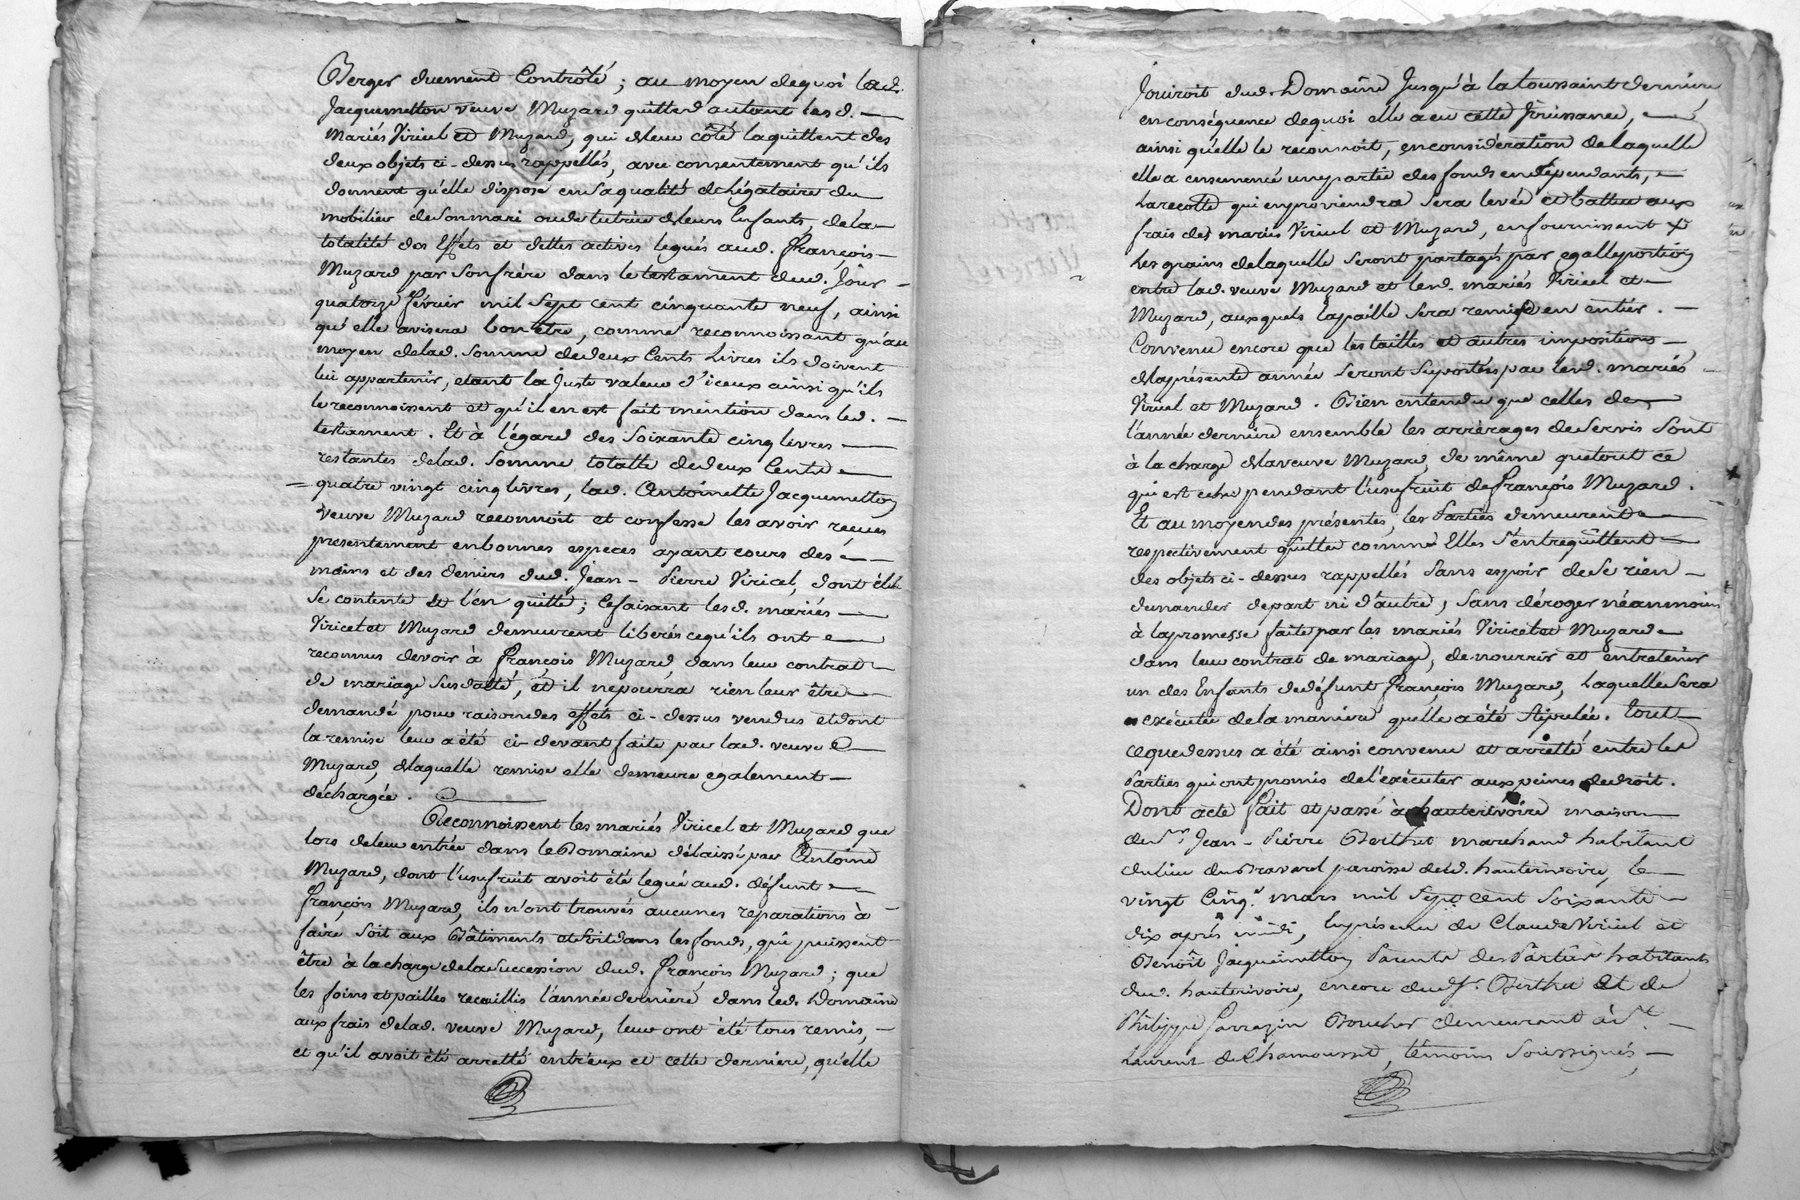 Berger duement Contrôlé ; au moyen dequoi lad.
Jacquemetton veuve Muzard quitte d'autant lesd. —
Mariés Viricel et Muzard, qui de leur côté la quittent des
deux objets ci-dessus rappellés, avec consentement qu'ils
donnent qu'elle dispose en sa qualité de légataire du
mobilier de son mari ou de tutrice de leurs Enfants, de la —
totalité des Effets et dettes actives legués aud. François —
Muzard par son frère dans le testament dud. Jour —
quatorze février mil sept cent cinquante neuf, ainsi
qu'elle avisera bon être, comme reconnoissant qu'au
moyen de lad. somme de deux Cents Livres ils doivent
lui appartenir, etant la juste valeur d'iceux ainsi qu'ils
le reconnoissent et qu'il en est fait mention dans led. —
testament. Et à l'égard des soixante cinq livres —
restantes de lad. somme totalle de deux Cents —
= quatre vingt cinq livres, lad. Antoinette Jacquemetton
veuve Muzard reconnoit et confesse les avoir reçues
presentement en bonnes especes ayant cours des —
mains et des deniers dud. Jean - Pierre Viricel, dont elle
se contente et l'en quitte ; Ce faisant lesd. mariés —
Viricel et Muzard demeurent libérés ce qu'ils ont —
reconnus devoir à François Muzard, dans leur contrat —
de mariage susdatté, et il ne pourra rien leur être —
demandé pour raison des effets ci-dessus vendus et dont
la remise leur a été ci-devant faite par lad. veuve —
Muzard, de laquelle remise elle demeure egalement —
déchargée. —
Reconnoissent les mariés Viricel et Muzard que
lors de leur entrée dans le Domaine délaissé par Antoine
Muzard, dont l'usufruit avoit été legué aud. défunt —
François Muzard, ils n'ont trouvés aucunes reparations à —
faire soit aux Bâtiments et soit dans les fonds, qui puissent
être à la charge de la succession dud. François Muzard ; que
les foins et pailles recuillis l'année derniere dans led. Domaine
aux frais de lad. veuve Muzard, leur ont été tous remis, —
et qu'il avoit été arretté entr'eux et cette derniere, qu'elle
Jouiroit dud. Domaine Jusqu'à la toussaint derniere
en conséquence dequoi elle a eu cette Jouissance, —
ainsi qu'elle le reconnoit, en considération de laquelle
elle a ensemencé une partie des fonds en dépendants, —
La recolte qui en proviendra sera levée et battue aux
frais des mariés Viricel et Muzard, en fournissent +
Les grains de laquelle seront partagés par egalle portion
entre lad. veuve Muzard et lesd. mariés Viricel et —
Muzard, auxquels la paille sera remise en entier. —
Convenu encore que les tailles et autres impositions —
de la présente année seront suportées par lesd. mariés —
Viricel et Muzard. Bien entendu que celles de —
l'année derniere ensemble les arrérages de servis sont
à la charge de la veuve Muzard, de même que tout ce
qui est echu pendant l'usufruit de François Muzard.
Et au moyen des présentes, les Parties demeurent —
respectivement quittes comme Elles s'entrequittent —
des objets ci-dessus rappellés sans espoir de se rien —
demander de part ni d'autre, sans déroger néanmoins
à la promesse faite par les mariés Viricel et Muzard —
dans leur contrat de mariage, de nourrir et entretenir
un des Enfants de défunt François Muzard, Laquelle sera
exécutée de la maniere qu'elle a été stipulée. Tout —
ce que dessus a été ainsi convenu et arretté entre les
Parties qui ont promis de l'exécuter aux peines de droit.
Dont acte fait et passé à hauterivoire maison —
de Sr. Jean - Pierre Berthet marchand habitant
du lieu du Bravard paroisse dud. hauterivoire, le —
vingt Cinq. mars mil sept cent soixante —
dix après midi, En présence de Claude Viricel et
Benoît Jacquemetton Parents des Parties habitants
dud. hauterivoire, encore dud. Sr. Berthet et de
Philippe Sarrazin Boucher demeurant à St. —
Laurent de Chamousset, témoins soussignés, —